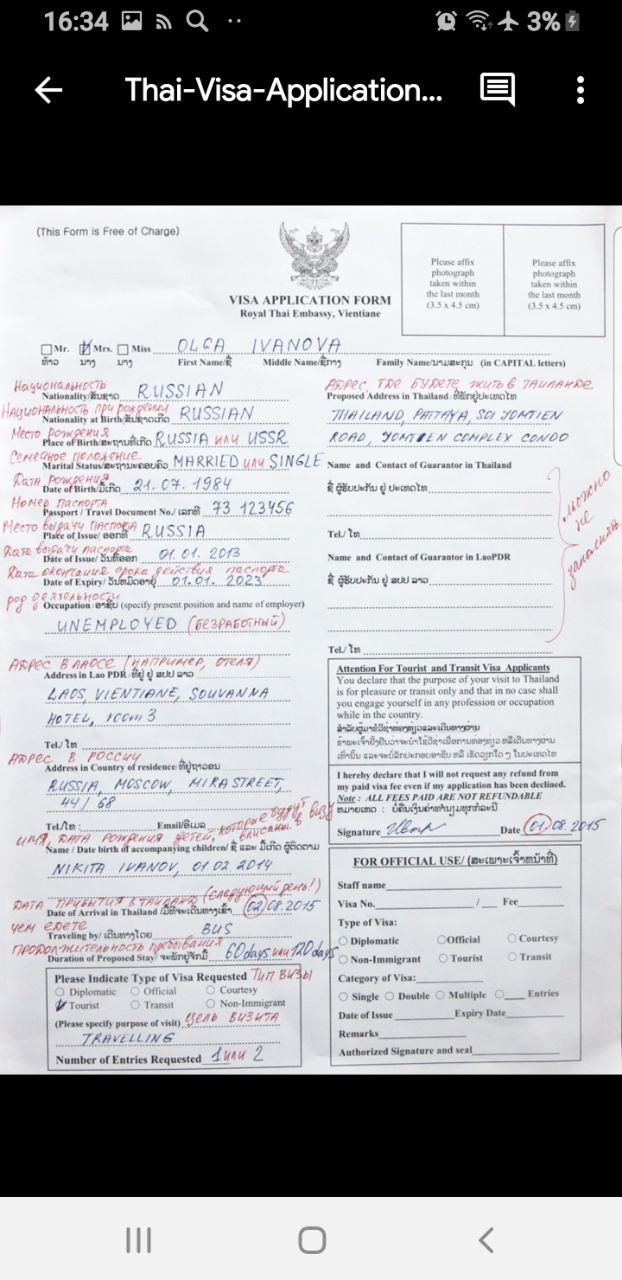 16:34
3%
Thai-Visa-Application...
(This Form is Free of Charge)
Please affix
photograph
taken within
the last month
(3.5 x 4.5 cm)
Please affix
photograph
taken within
the last month
(3.5 x 4.5 cm)
VISA APPLICATION FORM
Royal Thai Embassy, Vientiane
Mr. Mrs. Miss OLGA IVANOVA
ທ້າວ ນາງ ນາງ First Name/ຊື່ Middle Name/ຊື່ກາງ Family Name/ນາມສະກຸນ (in CAPITAL letters)
Национальность
Nationality/ສັນຊາດ RUSSIAN
Национальность при рождении
Nationality at Birth/ສັນຊາດເກີດ RUSSIAN
Место рождения
Place of Birth/ສະຖານທີ່ເກີດ RUSSIA или USSR
Семейное положение
Marital Status/ສະຖານະຄອບຄົວ MARRIED или SINGLE
Дата рождения
Date of Birth/ມື້ເກີດ 21.07.1984
Номер паспорта
Passport / Travel Document No./ ເລກທີ 73 123456
Место выдачи паспорта
Place of Issue/ ອອກທີ່ RUSSIA
Дата выдачи паспорта
Date of Issue/ ວັນທີ່ອອກ 01.01.2013
Дата окончания срока действия паспорта
Date of Expiry/ ວັນໝົດອາຍຸ 01.01.2023
род деятельности
Occupation /ອາຊີບ (specify present position and name of employer)
UNEMPLOYED (БЕЗРАБОТНЫЙ)
АДРЕС В ЛАОСЕ (НАПРИМЕР, ОТЕЛЯ)
Address in Lao PDR /ທີ່ຢູ່ ຢູ່ ສປປ ລາວ
LAOS, VIENTIANE, SOUVANNA
HOTEL, room 3
Tel./ ໂທ
АДРЕС В РОССИИ
Address in Country of residence ທີ່ຢູ່ຖາວອນ
RUSSIA, MOSCOW, MIRA STREET,
44/68
Tel./ໂທ: Email/ອີເມລ
ИМЯ, ДАТА РОЖДЕНИЯ ДЕТЕЙ, которые будут вписаны в визу
Name / Date birth of accompanying children/ ຊື່ ແລະ ມື້ເກີດ ຜູ້ຕິດຕາມ
NIKITA IVANOV, 01.02.2014
ДАТА ПРИБЫТИЯ В ТАИЛАНД (следующий день!)
Date of Arrival in Thailand /ມື້ທີ່ຈະເດີນທາງເຂົ້າ 02.08.2015
чем едете
Traveling by/ ເດີນທາງໂດຍ BUS
ПРОДОЛЖИТЕЛЬНОСТЬ пребывания
Duration of Proposed Stay/ ຈະພັກຢູ່ຈັກມື້ 60 days или 120 days
Please Indicate Type of Visa Requested ТИП ВИЗЫ
Diplomatic Official Courtesy
Tourist Transit Non-Immigrant
(Please specify purpose of visit) ЦЕЛЬ ВИЗИТА
TRAVELLING
Number of Entries Requested 1 или 2
АДРЕС, ГДЕ БУДЕТЕ ЖИТЬ В ТАИЛАНДЕ
Proposed Address in Thailand /ທີ່ພັກຢູ່ປະເທດໄທ
THAILAND, PATTAYA, SOI JOMTIEN
ROAD, JOMTIEN COMPLEX CONDO
Name and Contact of Guarantor in Thailand
ຊື່ ຜູ້ຮັບປະກັນ ຢູ່ ປະເທດໄທ
Tel./ ໂທ
Name and Contact of Guarantor in LaoPDR
ຊື່ ຜູ້ຮັບປະກັນ ຢູ່ ສປປ ລາວ
Tel./ ໂທ
можно
не
заполнять
Attention For Tourist and Transit Visa Applicants
You declare that the purpose of your visit to Thailand
is for pleasure or transit only and that in no case shall
you engage yourself in any profession or occupation
while in the country.
I hereby declare that I will not request any refund from
my paid visa fee even if my application has been declined.
Note : ALL FEES PAID ARE NOT REFUNDABLE
ໝາຍເຫດ : ບໍ່ຄືນເງິນຄ່າທຳນຽມທຸກກໍລະນີ
Signature Date 01.08.2015
FOR OFFICIAL USE/ (ສະເພາະເຈົ້າໜ້າທີ່)
Staff name
Visa No. / Fee
Type of Visa:
Diplomatic Official Courtesy
Non-Immigrant Tourist Transit
Category of Visa:
Single Double Multiple Entries
Date of Issue Expiry Date
Remarks
Authorized Signature and seal